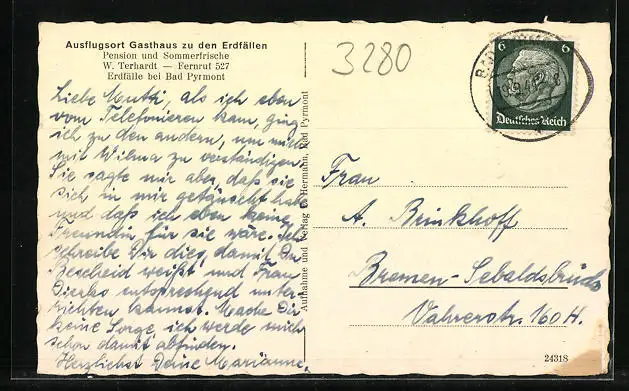 Ausflugsort Gasthaus zu den Erdfällen
Pension und Sommerfrische
W. Terhardt — Fernruf 527
Erdfälle bei Bad Pyrmont
3280
Liebe Mutti, als ich eben
vom Telefonieren kam, ging
ich zu den andern, um mich
mit Wilma zu verständigen.
Sie sagte mir aber, daß sie
sich in mir getäuscht hab
und daß ich eben keine
Freundin für sie wäre. Ich
schreibe Dir dies, damit Du
Bescheid weißt, und Frau
Dierks entsprechend unter-
richten kannst. Mache Dir
keine Sorge, ich werde mich
schon damit abfinden.
Herzlichst Deine Marianne.
Aufnahme und Verlag Hermann, Bad Pyrmont
BAD
6 6
Deutsches Reich
Frau
A. Brinkhoff
Bremen-Sebaldsbrück
Vahrerstr. 160 H.
24318